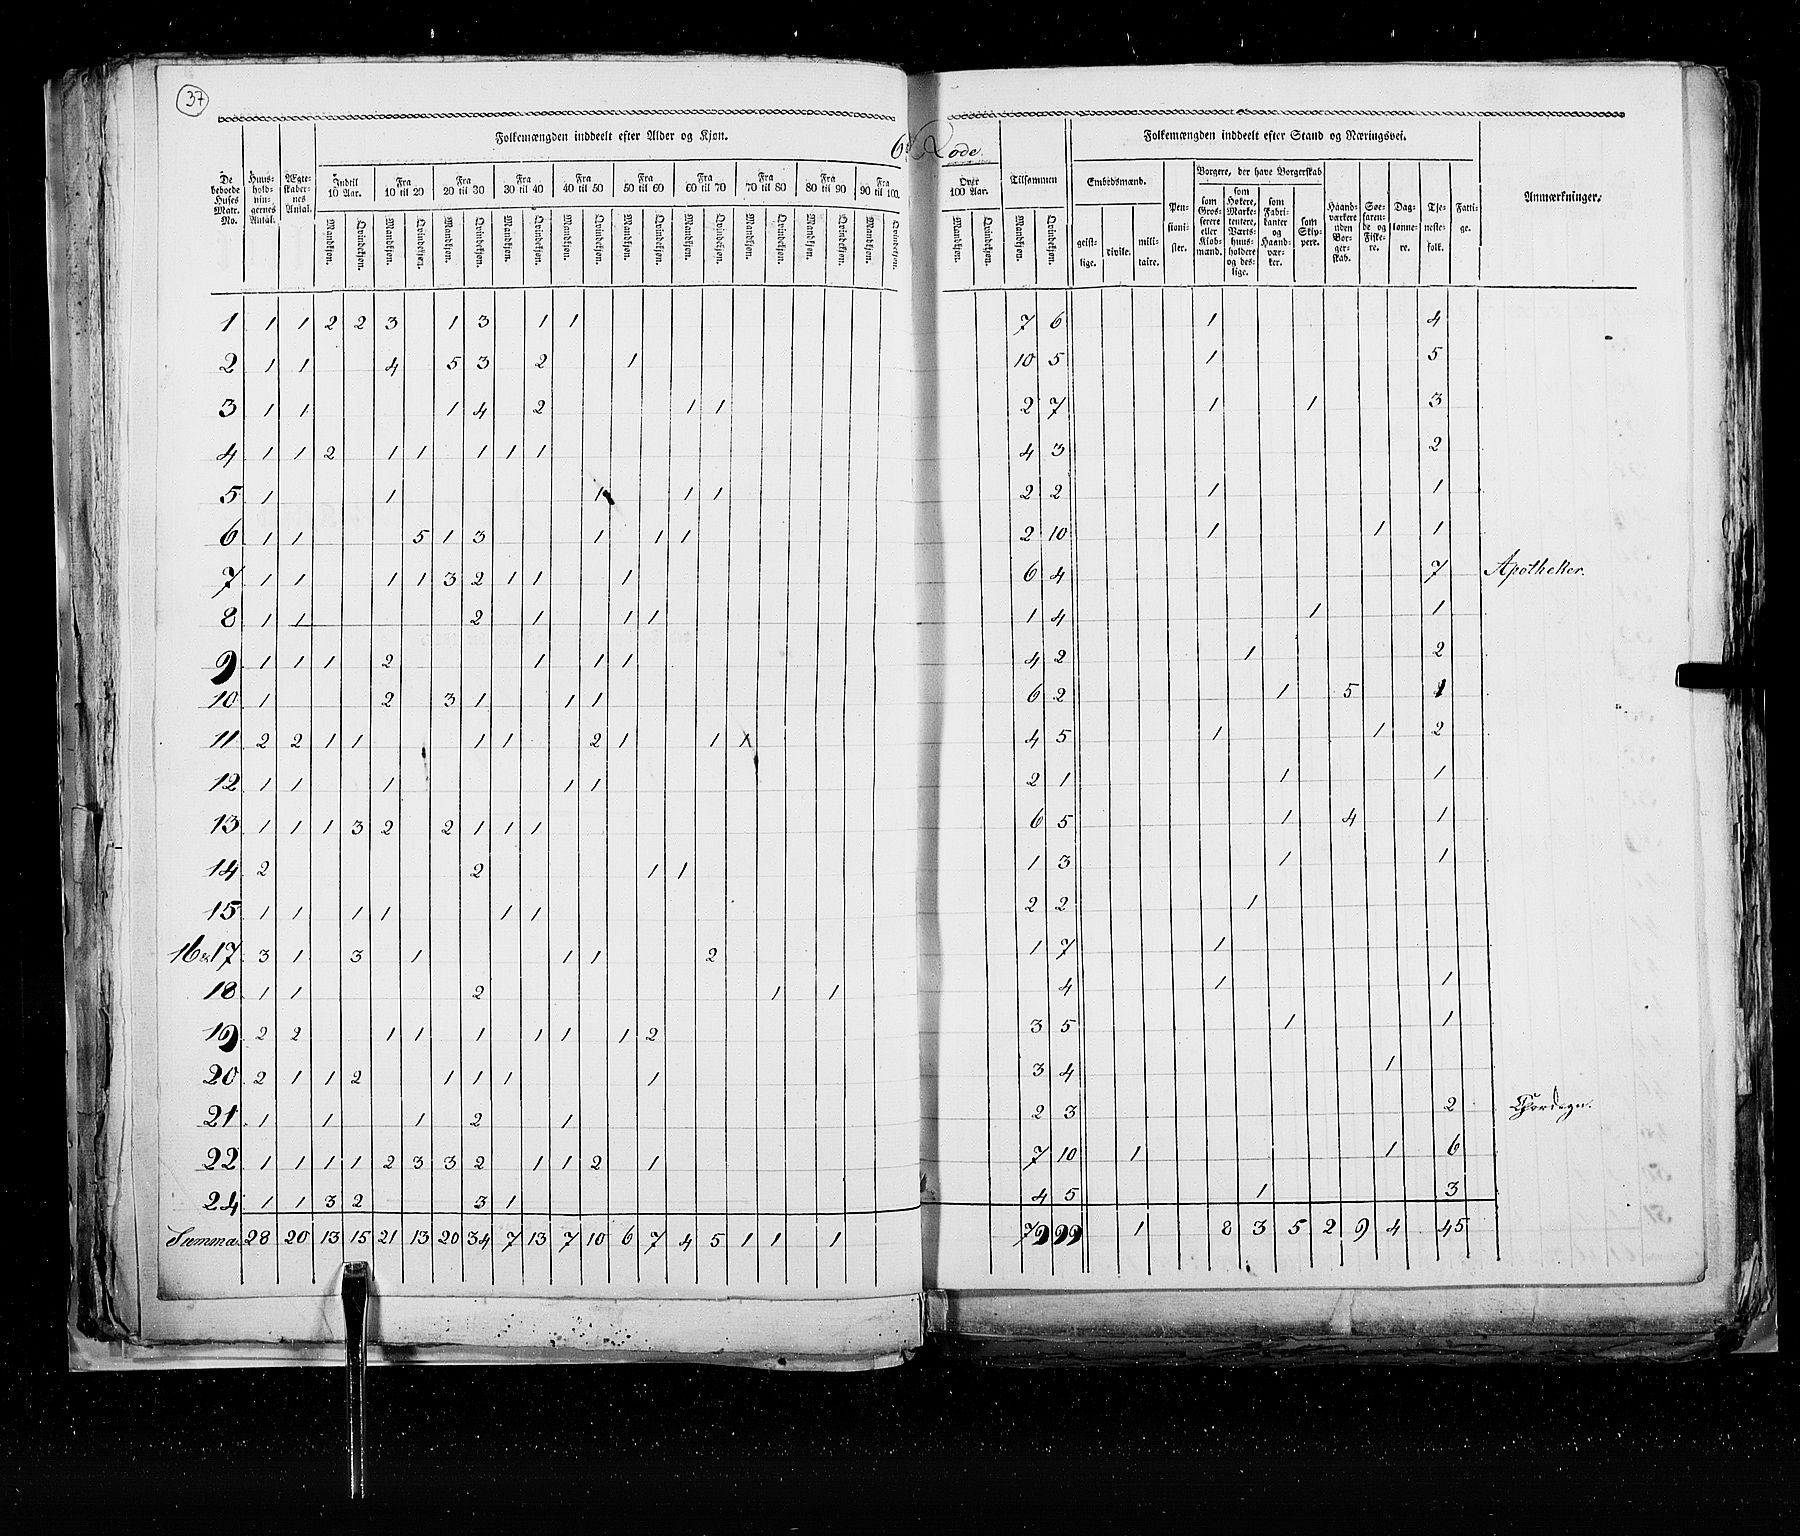 37
Folkemængden inddeelt efter Alder og Kjøn.
6te Rode.
Folkemængden inddeelt efter Stand og Næringsvei.
De beboede Huses Matr. No.
Huus-hold-nin-gernes Antal.
Ægte-skaber-nes Antal.
Indtil 10 Aar.
Fra 10 til 20
Fra 20 til 30
Fra 30 til 40
Fra 40 til 50
Fra 50 til 60
Fra 60 til 70
Fra 70 til 80
Fra 80 til 90
Fra 90 til 100.
Over 100 Aar.
Tilsammen
Embedsmænd.
Pen-sioni-ster.
Borgere, der have Borgerskab
Haand-værkere uden Bor-ger-skab.
Søe-farende og Fiske-re.
Dag-lønne-re.
Tje-neste-folk.
Fatti-ge.
Anmærkninger.
Mandkjøn. Qvindekjøn. Mandkjøn. Qvindekjøn. Mandkjøn. Qvindekjøn. Mandkjøn. Qvindekjøn. Mandkjøn. Qvindekjøn. Mandkjøn. Qvindekjøn. Mandkjøn. Qvindekjøn. Mandkjøn. Qvindekjøn. Mandkjøn. Qvindekjøn. Mandkjøn. Qvindekjøn. Mandkjøn. Qvindekjøn. Mandkjøn. Qvindekjøn.
geist-lige. civile. mili-taire.
som Gros-serere eller Kiøb-mænd.
som Høkere, Marke-tentere, Værts-huus-holdere og des-lige.
som Fabri-kanter og Haand-vær-ker.
som Skip-pere.
1 1 1 2 2 3 1 3 1 1 7 6 1 4
2 1 1 4 5 3 2 1 10 5 1 5
3 1 1 1 4 2 1 1 2 7 1 1 3
4 1 1 2 1 1 1 1 1 4 3 2
5 1 1 1 1 1 2 2 1 1
6 1 1 5 1 3 1 1 1 2 10 1 1 1
7 1 1 1 1 3 2 1 1 1 6 4 7 Apotheker.
8 1 1 2 1 1 1 1 4 1 1
9 1 1 1 2 1 1 1 4 2 1 2
10 1 2 3 1 1 1 6 2 1 5 1
11 2 2 1 1 1 1 2 1 1 1 4 5 1 1 2
12 1 1 1 1 1 2 1 1 1
13 1 1 1 3 2 2 1 1 1 6 5 1 4 1
14 2 2 1 1 1 3 1 1
15 1 1 1 1 1 1 2 2 1
16 & 17 3 1 3 1 1 1 2 1 7 1
18 1 1 2 1 1 4 1 1
19 2 2 1 1 1 1 1 1 2 3 5 1 1
20 2 1 1 2 1 1 1 1 3 4 1
21 1 1 1 2 1 2 3 2
22 1 1 1 1 2 3 3 2 1 1 2 1 7 10 1 1 6
24 1 1 3 2 3 1 4 5 1 3
Summa 28 20 13 15 21 13 20 34 7 13 7 10 6 7 4 5 1 1 1 79 99 1 8 3 5 2 9 4 45